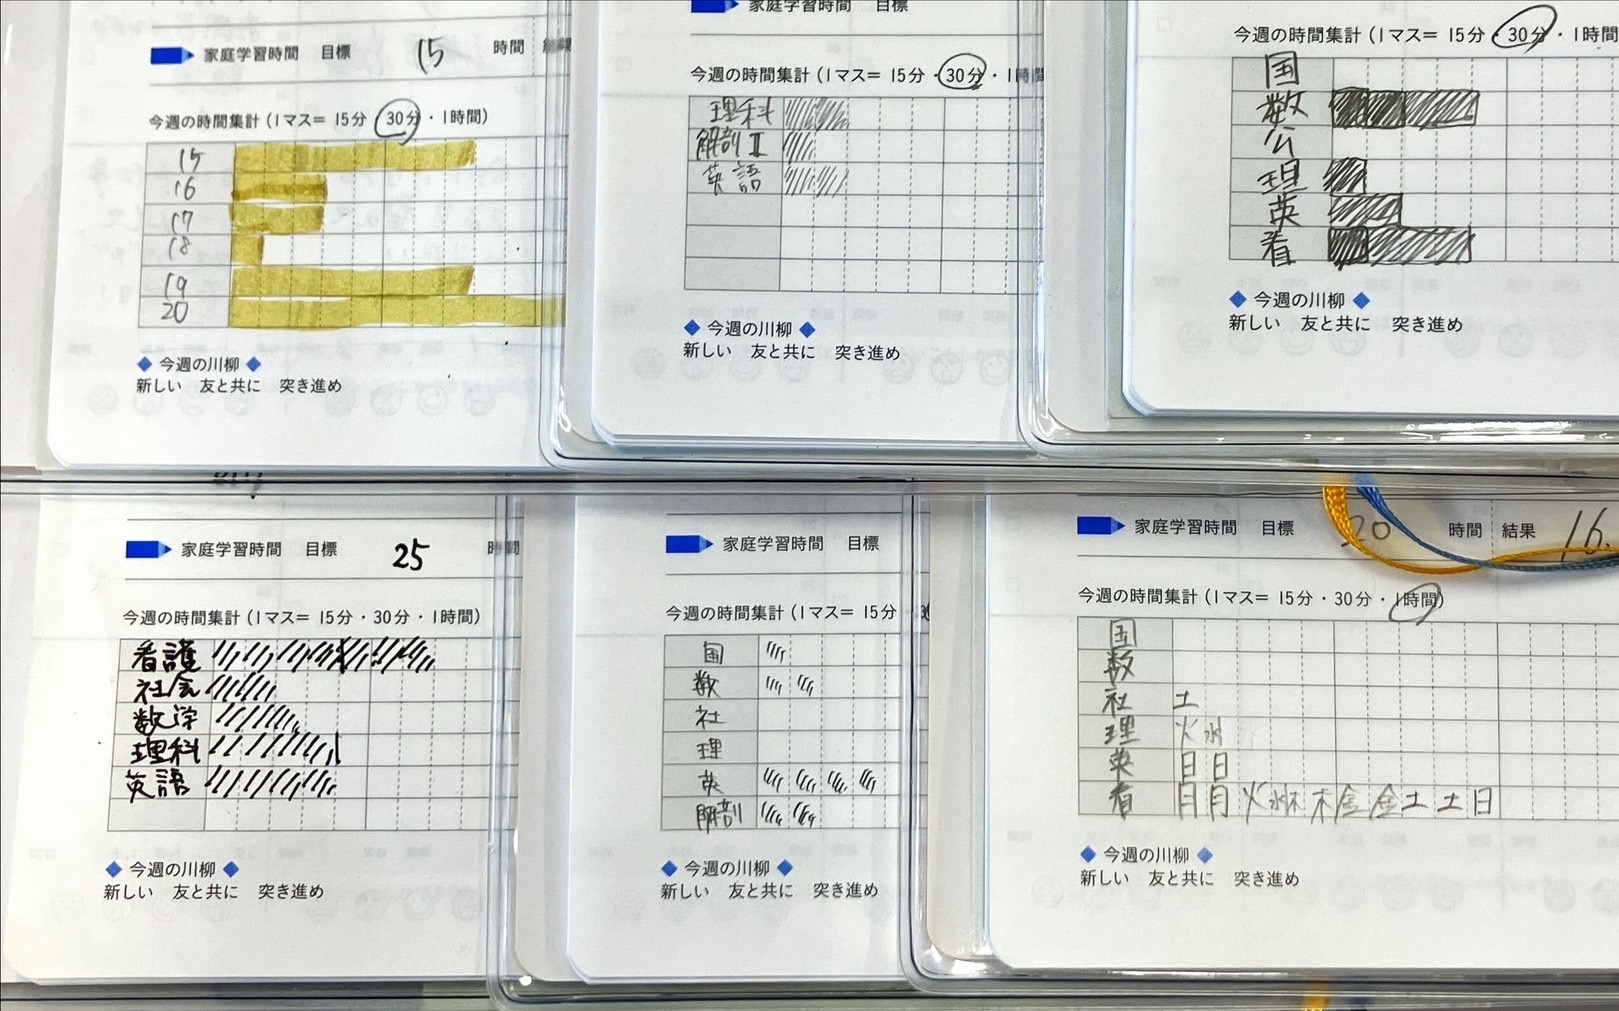 家庭学習時間 目標 15 時間
今週の時間集計(1マス= 15分・30分・1時間)
15
16
17
18
19
20
今週の川柳
新しい 友と共に 突き進め
家庭学習時間 目標
今週の時間集計(1マス= 15分・30分・1時間
理科
解剖II
英語
今週の川柳
新しい 友と共に 突き進め
今週の時間集計(1マス= 15分・30分・1時間
国
数
公
理
英
看
今週の川柳
新しい 友と共に 突き進め
家庭学習時間 目標 25 時間
今週の時間集計(1マス= 15分・30分・1時間)
看護
社会
数学
理科
英語
今週の川柳
新しい 友と共に 突き進め
家庭学習時間 目標
今週の時間集計(1マス= 15分
国
数
社
理
英
解剖
今週の川柳
新しい 友と共に 突き進め
家庭学習時間 目標 20 時間 結果 16.
今週の時間集計(1マス= 15分・30分・1時間)
国
数
社 土
理 火 水
英 日 日
看 月 月 火 水 木 金 金 土 土 日
今週の川柳
新しい 友と共に 突き進め